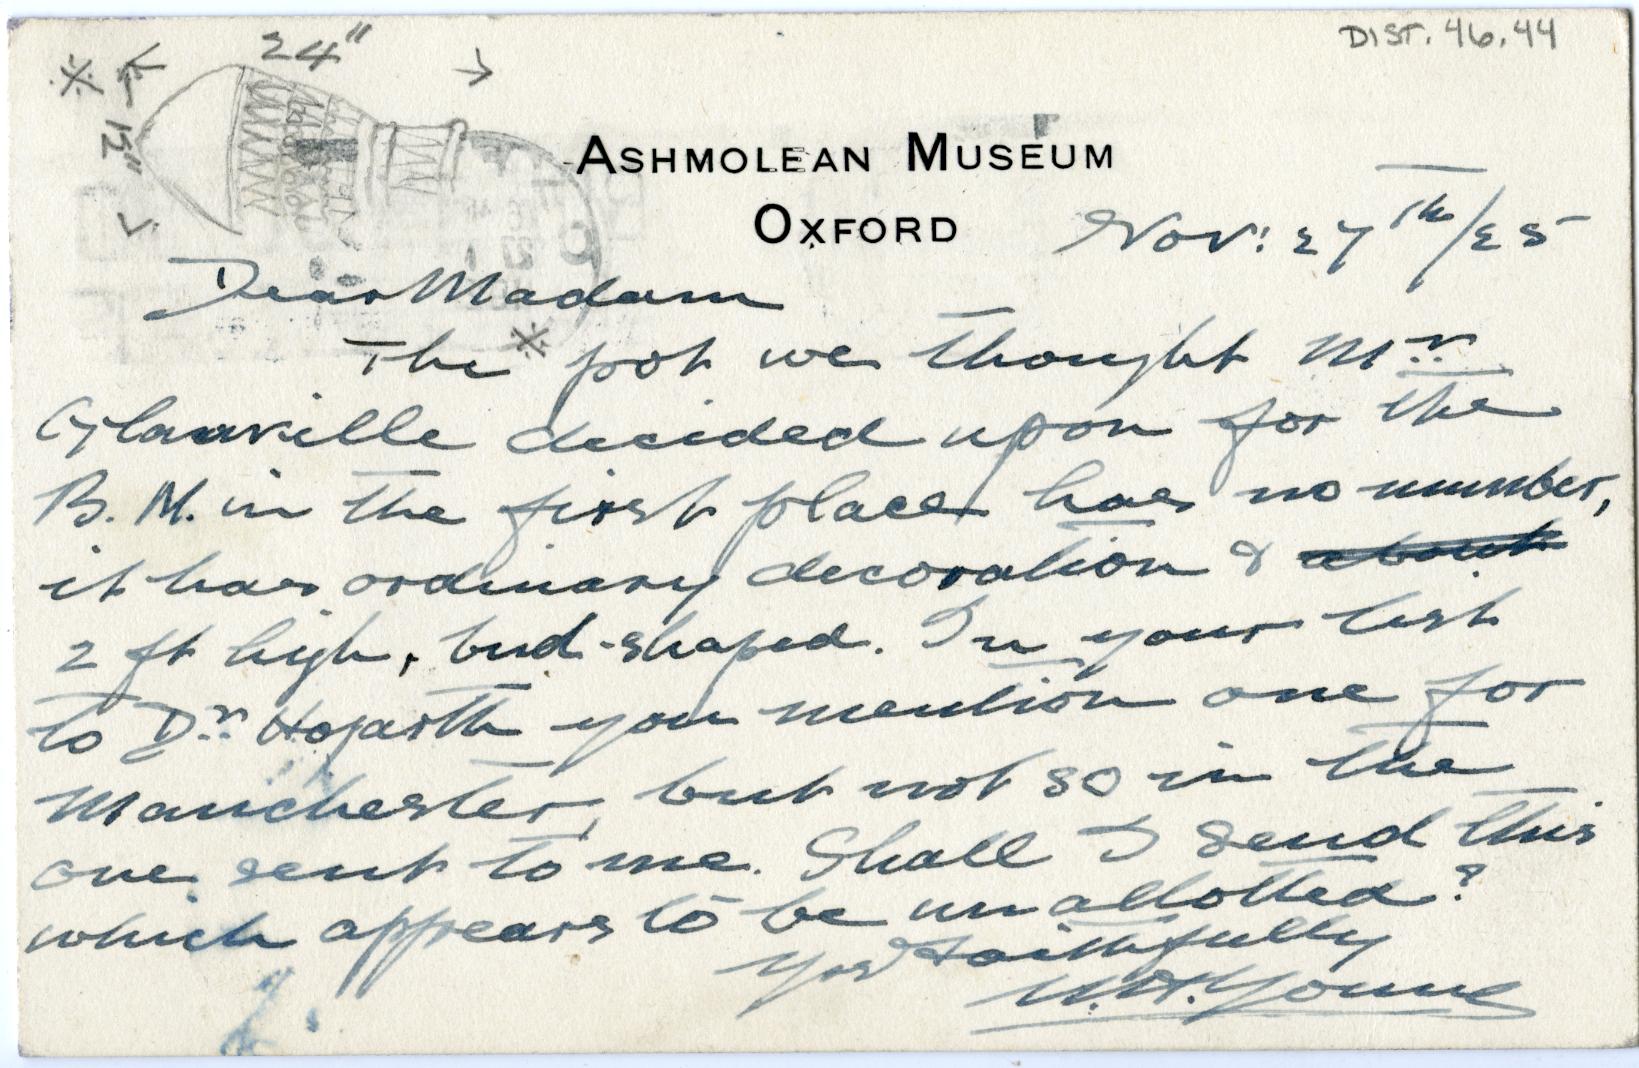 DIST. 46.44
24"
12"
ASHMOLEAN MUSEUM
OXFORD
Nov: 27th/25
Dear Madam
The * pot we thought Mr
Glanville decided upon for the
B. M. in the first place has no number,
it has ordinary decoration & about
2 ft high, bud-shaped. In your list
to Dr Hogarth you mention one for
Manchester, but not so in the
one sent to me. Shall I send this
which appears to be unallotted?
Yrs faithfully
W.H. Young